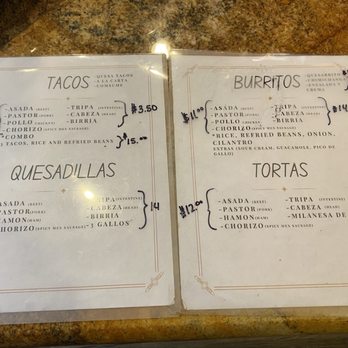 TACOS
-QUESA TACOS
-A LA CARTA
-ASADA (BEEF) -TRIPA (INTESTINE)
-PASTOR (PORK) -CABEZA (HEAD)
-POLLO -BIRRIA
-CHORIZO (SPICY MEX SAUSAGE)
$3.50
COMBO
3 TACOS, RICE AND REFRIED BEANS
$15.00
QUESADILLAS
ASADA (BEEF)
PASTOR (PORK) -CABEZA (HEAD)
HAMON (HAM) -BIRRIA
CHORIZO (SPICY MEX SAUSAGE) -3 GALLOS
14
BURRITOS
-ASADA (BEEF) -TRIPA (INTESTINE)
-PASTOR (PORK) -CABEZA (HEAD)
-POLLO -BIRRIA
-CHORIZO (SPICY MEX SAUSAGE)
$11.00
$14
*RICE, REFRIED BEANS, ONION,
CILANTRO
EXTRAS (SOUR CREAM, GUACAMOLE, PICO DE
GALLO)
TORTAS
-ASADA (BEEF) -TRIPA (INTESTINE)
-PASTOR (PORK) -CABEZA (HEAD)
-HAMON (HAM) -MILANESA DE
-CHORIZO (SPICY MEX SAUSAGE)
$12.00